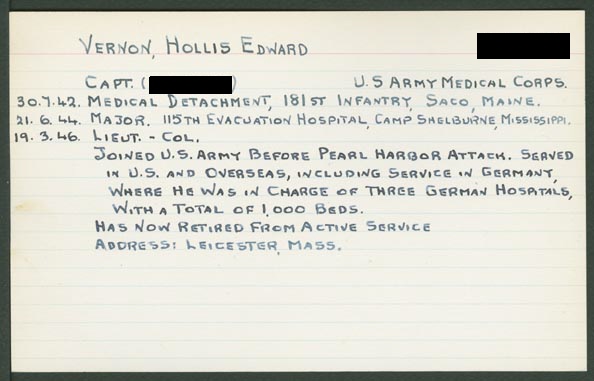 VERNON, HOLLIS EDWARD
CAPT. ( ) U.S ARMY MEDICAL CORPS.
30.7.42. MEDICAL DETACHMENT, 181ST INFANTRY, SACO, MAINE.
21.6.44. MAJOR. 115TH EVACUATION HOSPITAL, CAMP SHELBURNE, MISSISSIPPI.
19.3.46. LIEUT.-COL.
JOINED U.S. ARMY BEFORE PEARL HARBOR ATTACK. SERVED
IN U.S. AND OVERSEAS, INCLUDING SERVICE IN GERMANY,
WHERE HE WAS IN CHARGE OF THREE GERMAN HOSPITALS,
WITH A TOTAL OF 1,000 BEDS.
HAS NOW RETIRED FROM ACTIVE SERVICE
ADDRESS: LEICESTER, MASS.